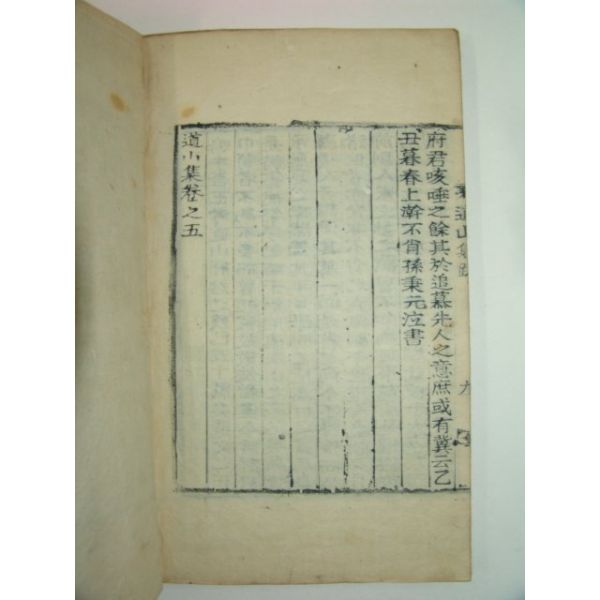 道山集跋
九
府君咳唾之餘其於追慕先人之意庶或有冀云乙
丑暮春上澣不肖孫秉元泣書
道山集卷之五